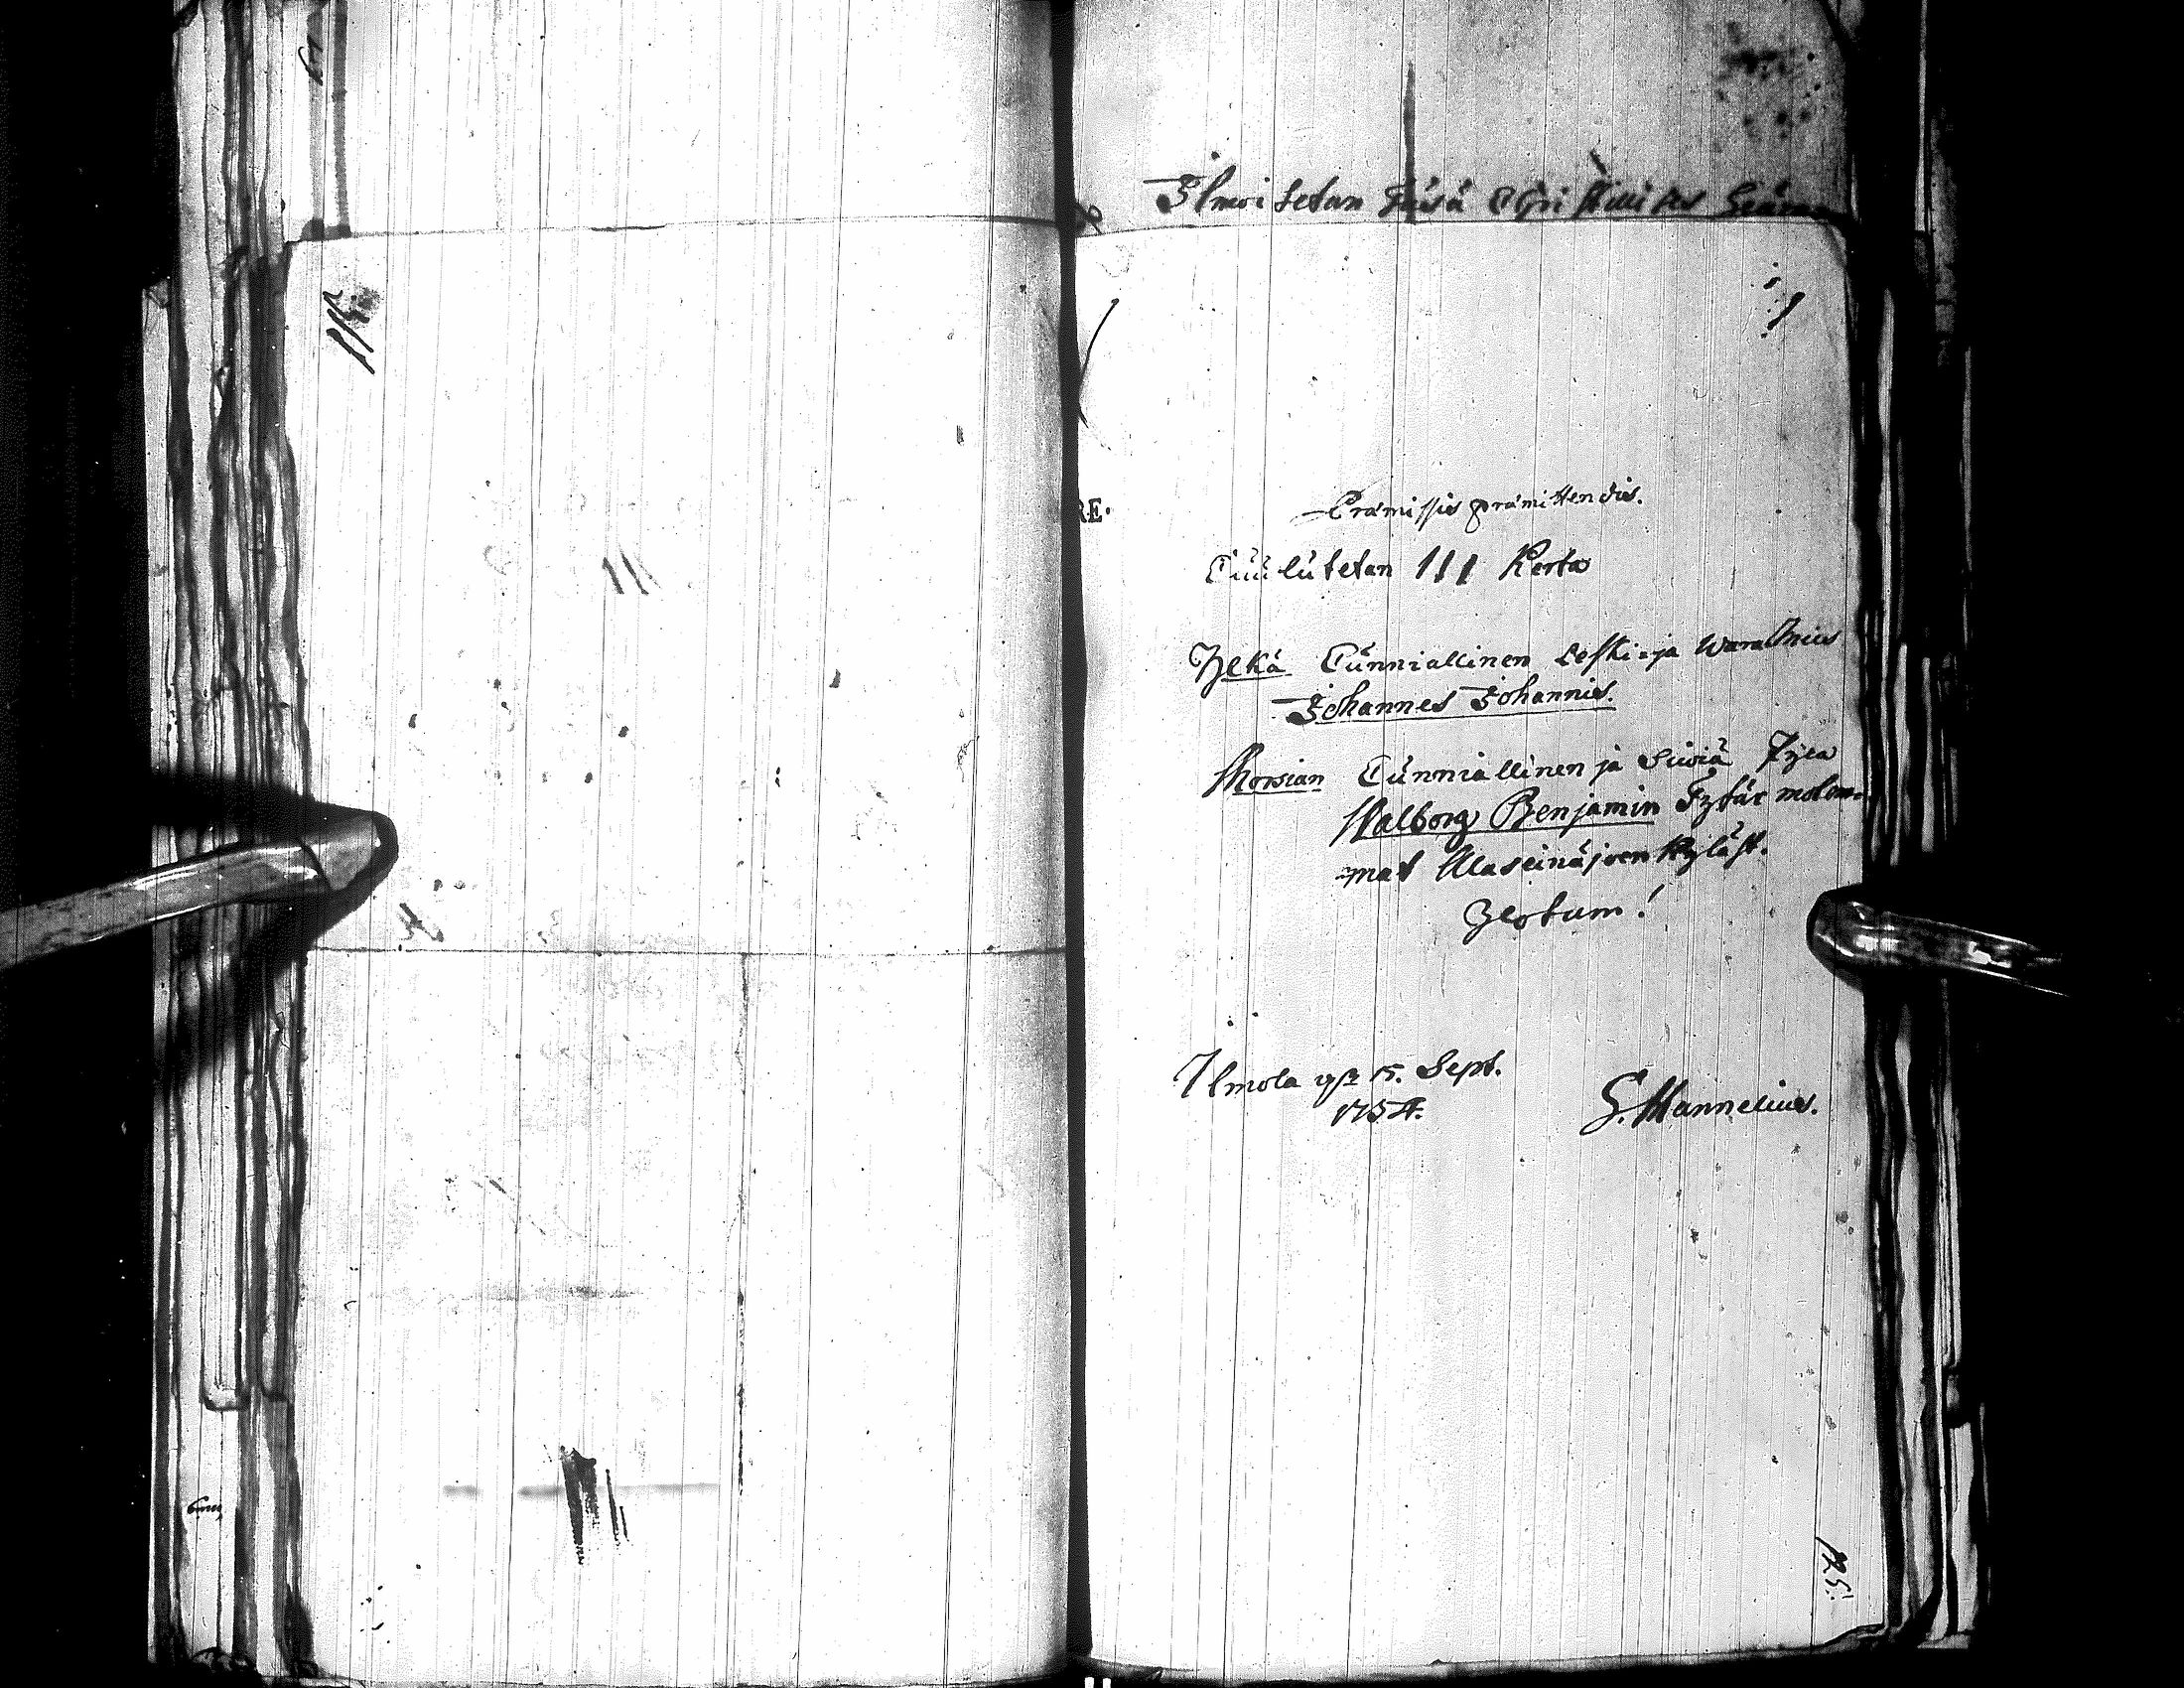 Ilmoisetan Täsä
RE.
Præmissis præmittendis.
Cuulutetan III Kerta
Yckä Cunniallinen Leski-ja waralMies
Johannes Johannis.
Morsian Cunniallinen ja Siwiä Pijca
Walborg Benjamin Tytär molem-
mat Alaseinäjoen Kyläst.
Ilmola 15. Sept.
1754.
G. Mannelius.
125.